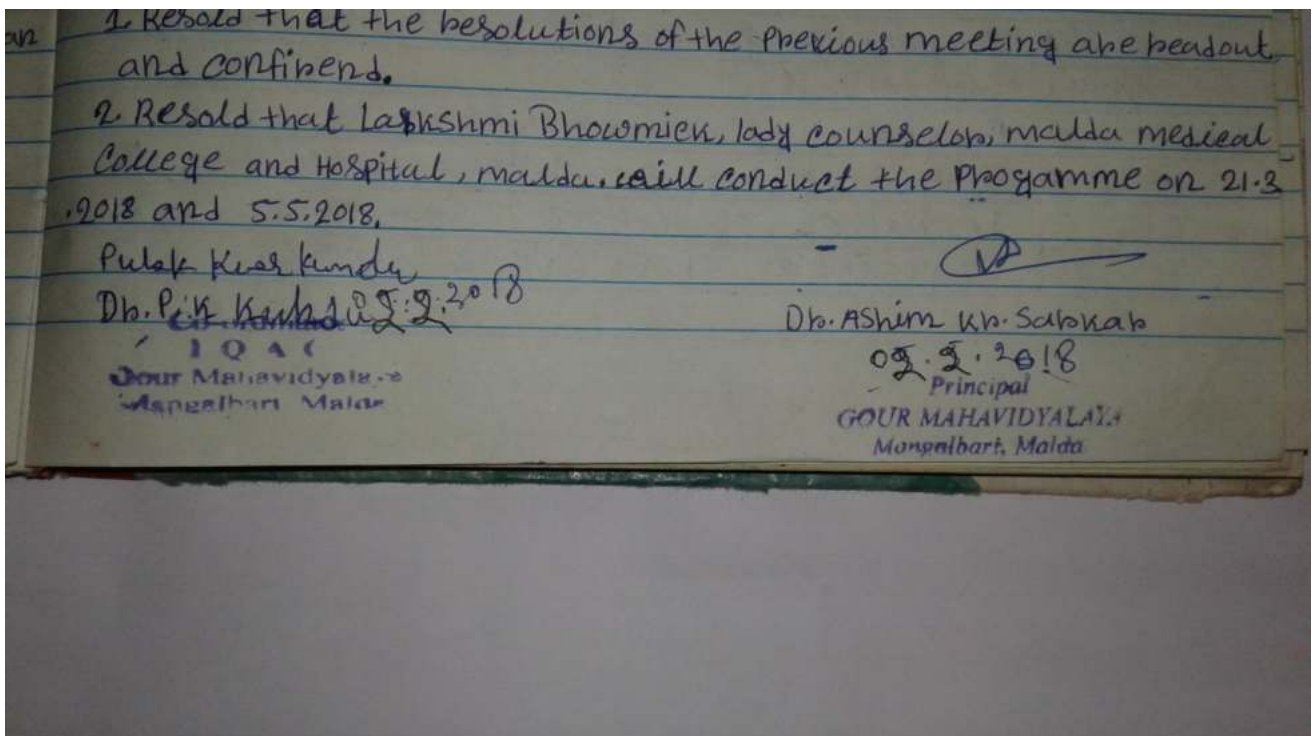 an
1. Resold that the resolutions of the previous meeting are readout
and confirend.
2. Resold that Lakshmi Bhowmick, lady counselor, malda medical
College and Hospital, malda. will conduct the Progamme on 21.3
.2018 and 5.5.2018.
Pulak Kundu
Dr. P.K. 2.2018
IQAC
Gour Mahavidyalaya
Mangalbari Malda
Dr. Ashim Kr. Sarkar
2.2018
Principal
GOUR MAHAVIDYALAYA
Mangalbari, Malda